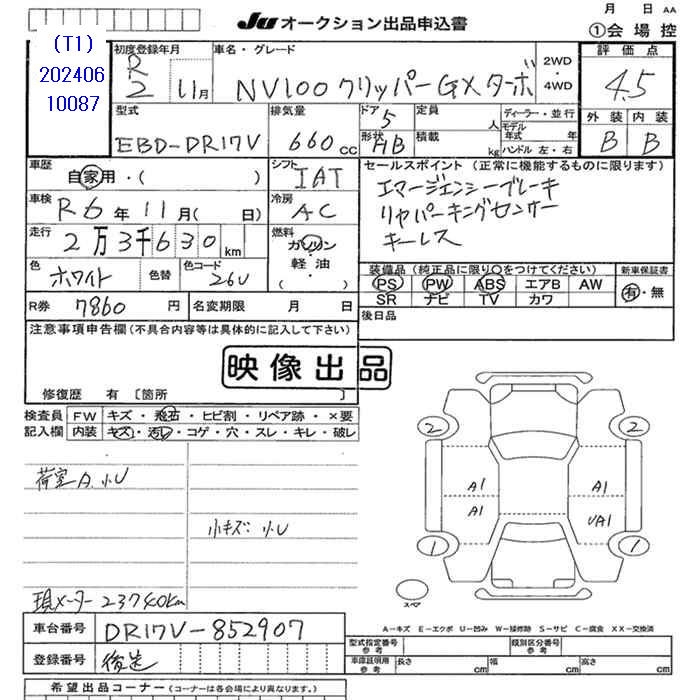 月 日 AA
JU オークション出品申込書 ①会場控
(T1)
202406
10087
初度登録年月 R2 11月
車名・グレード NV100クリッパーGXターボ
2WD・4WD
評価点 4.5
型式 EBD-DR17V
排気量 660cc
ドア 5
形状 HB
定員 人
積載 kg
ディーラー・並行
モデル年式 年
ハンドル 左・右
外装 内装
B B
車歴 自家用・( )
シフト IAT
車検 R6年11月( 日)
冷房 AC
走行 2万3千630km
燃料 ガソリン
軽油・( )
色 ホワイト 色替 色コード 26U
R券 7860円 名変期限 月 日
セールスポイント (正常に機能するものに限ります)
エマージェンシーブレーキ
リヤパーキングセンサー
キーレス
装備品(純正品に限り〇をつけてください) 新車保証書
PS PW ABS エアB AW 有・無
SR ナビ TV カワ
後日品
注意事項申告欄(不具合内容等は具体的に記入して下さい)
映像出品
修復歴 有 [箇所 ]
検査員 FW キズ・飛石・ヒビ割・リペア跡・×要
記入欄 内装 キズ・汚レ・コゲ・穴・スレ・キレ・破レ
荷室A.小U
小キズ 小U
現メーター 23740km
2 2
A1 A1
A1 UA1
1 1
スペア
A―キズ E―エクボ U―凹み W―補修跡 S―サビ C―腐食 XX―交換済
車台番号 DR17V-852907
登録番号 後送
型式指定番号 参考 類別区分番号 参考
車庫証明用 参考 長さ cm 幅 cm 高さ cm
希望出品コーナー(コーナーは各会場により異なります。)